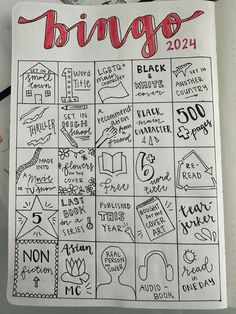 bingo
2024
SET IN small town
1 Word Title
LGBTQ+ main character
BLACK & WHITE cover
SET IN ANOTHER COUNTRY
THRILLER
SET IN HIGH school
recommendation from
BLACK MAIN CHARACTER
500 + pages
MADE into a Movie OR TV SHOW
flowers ON THE COVER
free
6+ word title
RE-READ
5
LAST BOOK in a SERIES
PUBLISHED THIS YEAR
Bought for the COVER ART
tear jerker
NON fiction
Asian MC
REAL PERSON COVER
AUDIO-BOOK
read in ONE DAY